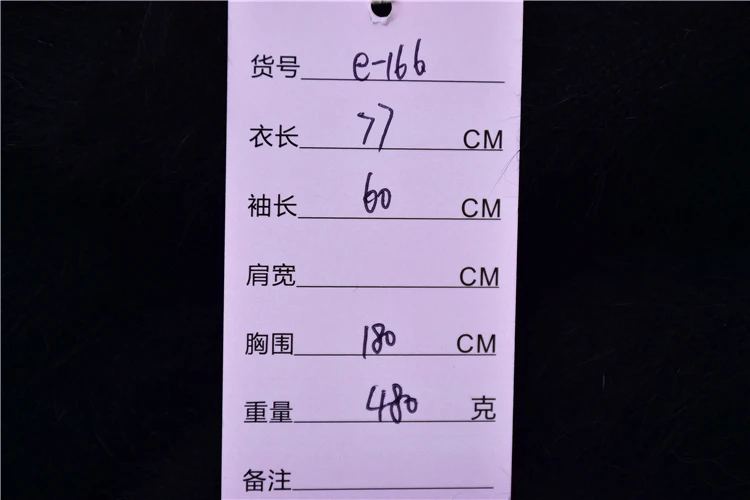 货号 e-166
衣长 77 CM
袖长 60 CM
肩宽 CM
胸围 180 CM
重量 480 克
备注